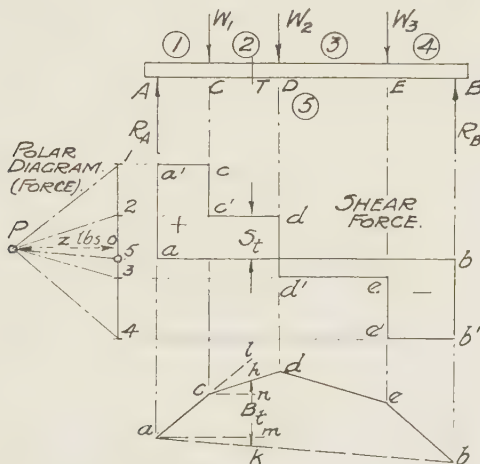 W₁ W₂ W₃
① ② ③ ④
A C T D E B
⑤
R_A R_B
POLAR
DIAGRAM
(FORCE).
1
2
P z lbs o
5
3
4
a' c
c' d
+ S_t
SHEAR
FORCE.
a b
d' e
e' b'
−
l
h d
c n e
B_t
a m
k b